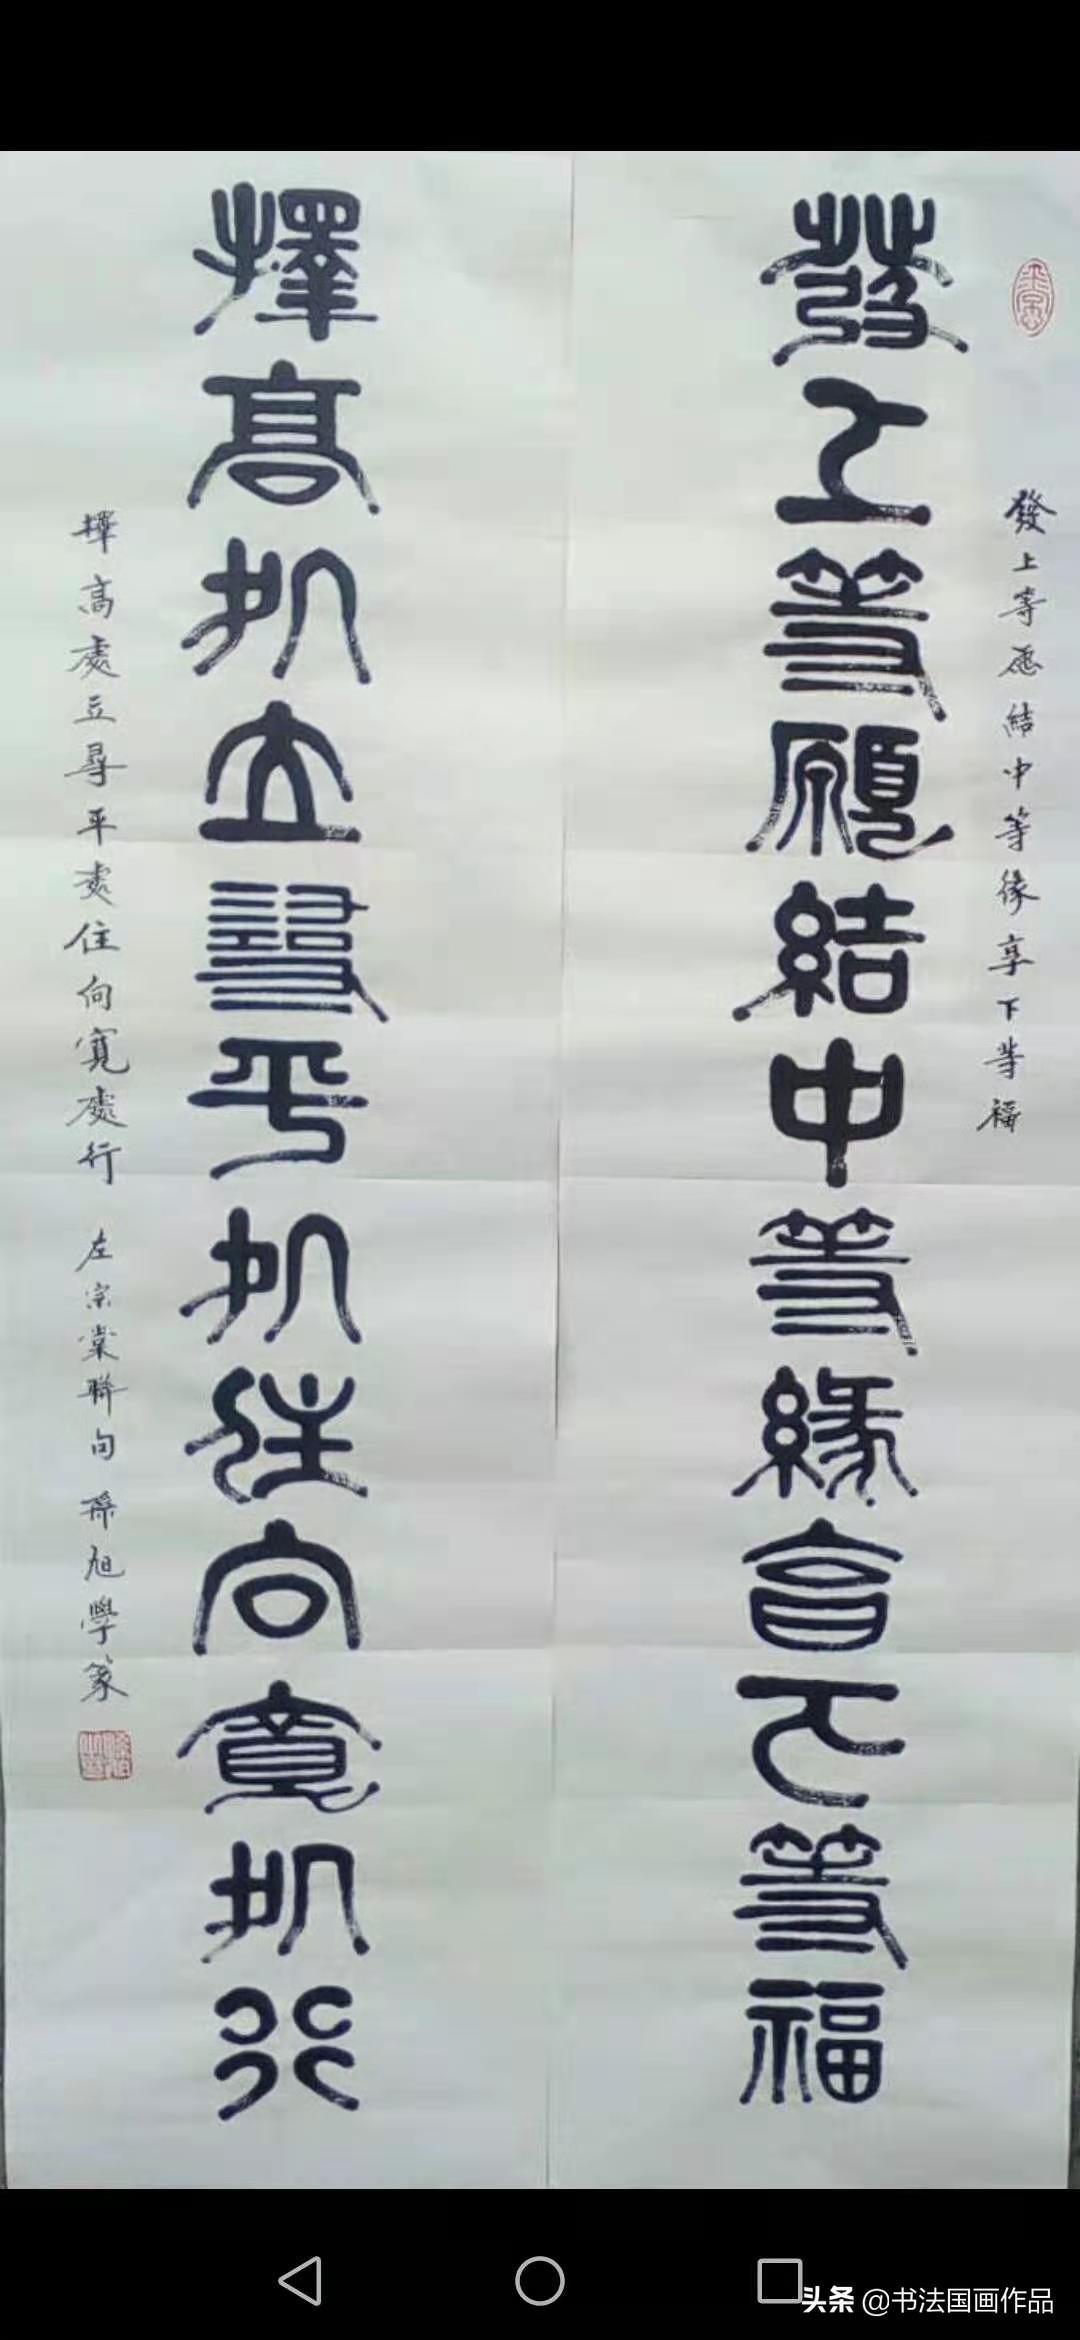 發上等願結中等緣享下等福
發上等愿結中等緣享下等福
擇高処立尋平処住向寬処行
擇高處立尋平處住向寬處行 左宗棠聯句 孫旭學篆
头条 @书法国画作品